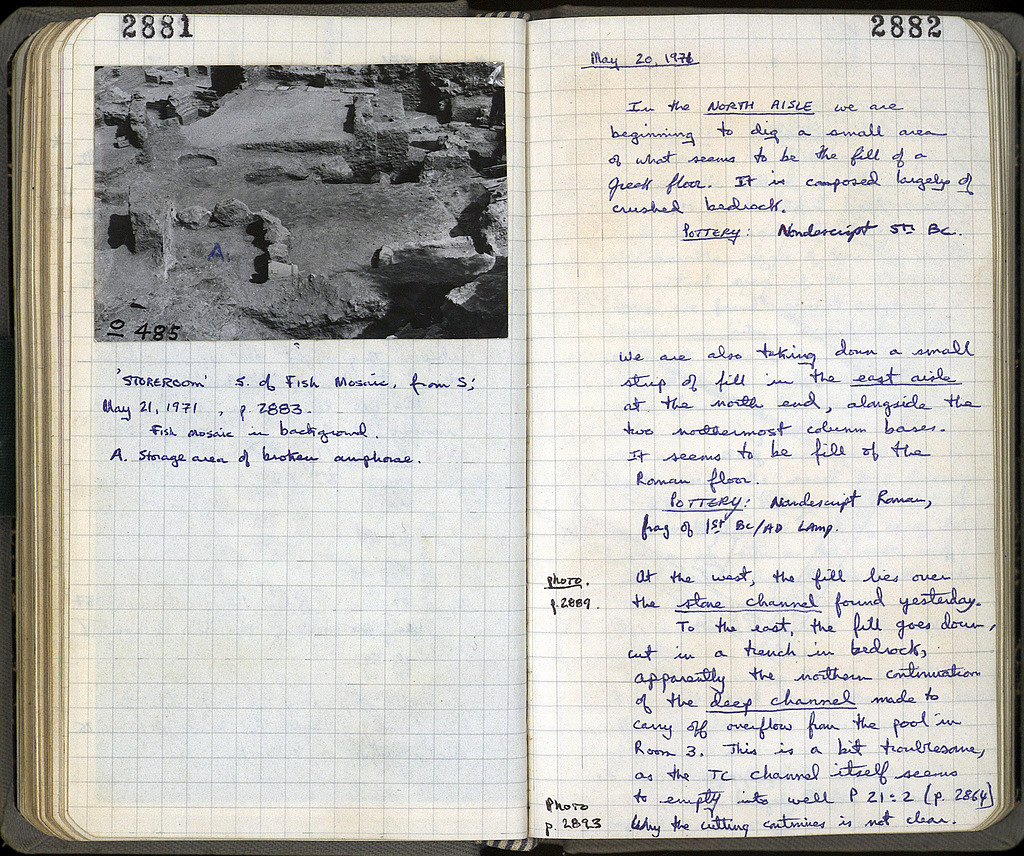 2881
A
O 485
'STOREROOM' S. of Fish Mosaic, from S;
May 21, 1971, p. 2883.
Fish mosaic in background.
A. Storage area of broken amphorae.
2882
May 20, 1971
In the NORTH AISLE we are
beginning to dig a small area
of what seems to be the fill of a
Greek floor. It is composed largely of
crushed bedrock.
POTTERY: Nondescript 5th BC.
We are also taking down a small
strip of fill in the east aisle
at the north end, alongside the
two northernmost column bases.
It seems to be fill of the
Roman floor.
POTTERY: Nondescript Roman,
frag of 1st BC/AD Lamp.
photo.
p.2889.
At the west, the fill lies over
the stone channel found yesterday.
To the east, the fill goes down,
cut in a trench in bedrock,
apparently the northern continuation
of the deep channel made to
carry off overflow from the pool in
Room 3. This is a bit troublesome,
as the TC channel itself seems
to empty into well P 21:2 (p. 2864)
Photo
p. 2893
Why the cutting continues is not clear.